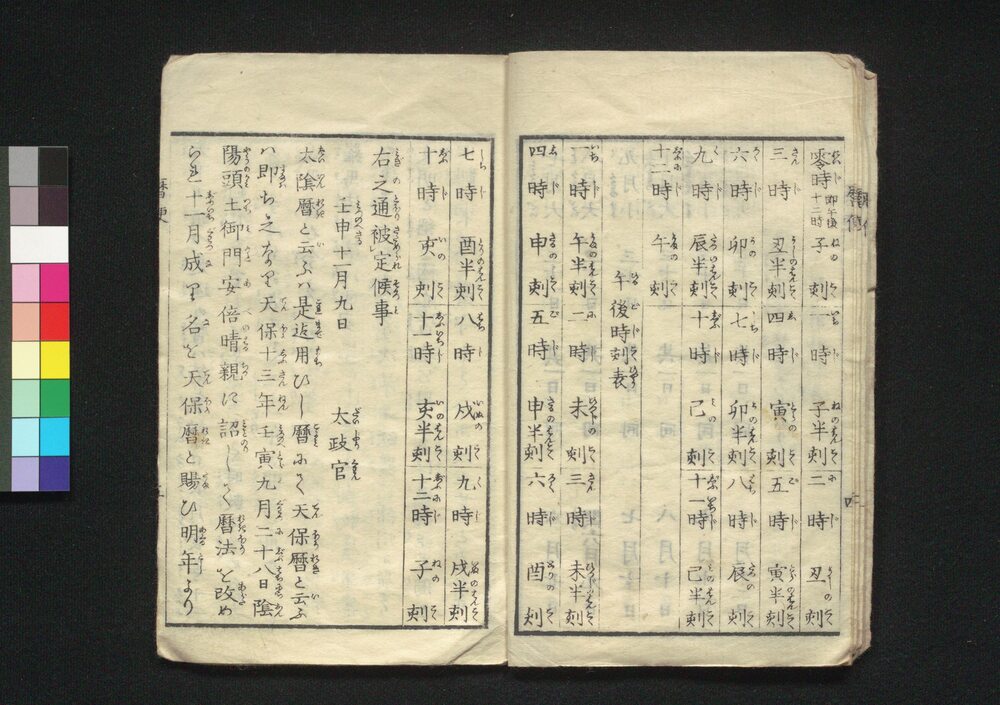 零時 即午後十二時 子刻 一時 子半刻 二時 丑刻
三時 丑半刻 四時 寅刻 五時 寅半刻
六時 卯刻 七時 卯半刻 八時 辰刻
九時 辰半刻 十時 巳刻 十一時 巳半刻
十二時 午刻
午後時刻表
一時 午半刻 二時 未刻 三時 未半刻
四時 申刻 五時 申半刻 六時 酉刻
七時 酉半刻 八時 戌刻 九時 戌半刻
十時 亥刻 十一時 亥半刻 十二時 子刻
右之通被定候事
壬申十一月九日 太政官
太陰暦と云ふハ是迠用ひし暦にて天保暦と云ふ
ハ即ち之なり天保十三年壬寅九月二十八日陰
陽頭土御門安倍晴親に詔して暦法を改め
られ十一月成り名を天保暦と賜ひ明年より